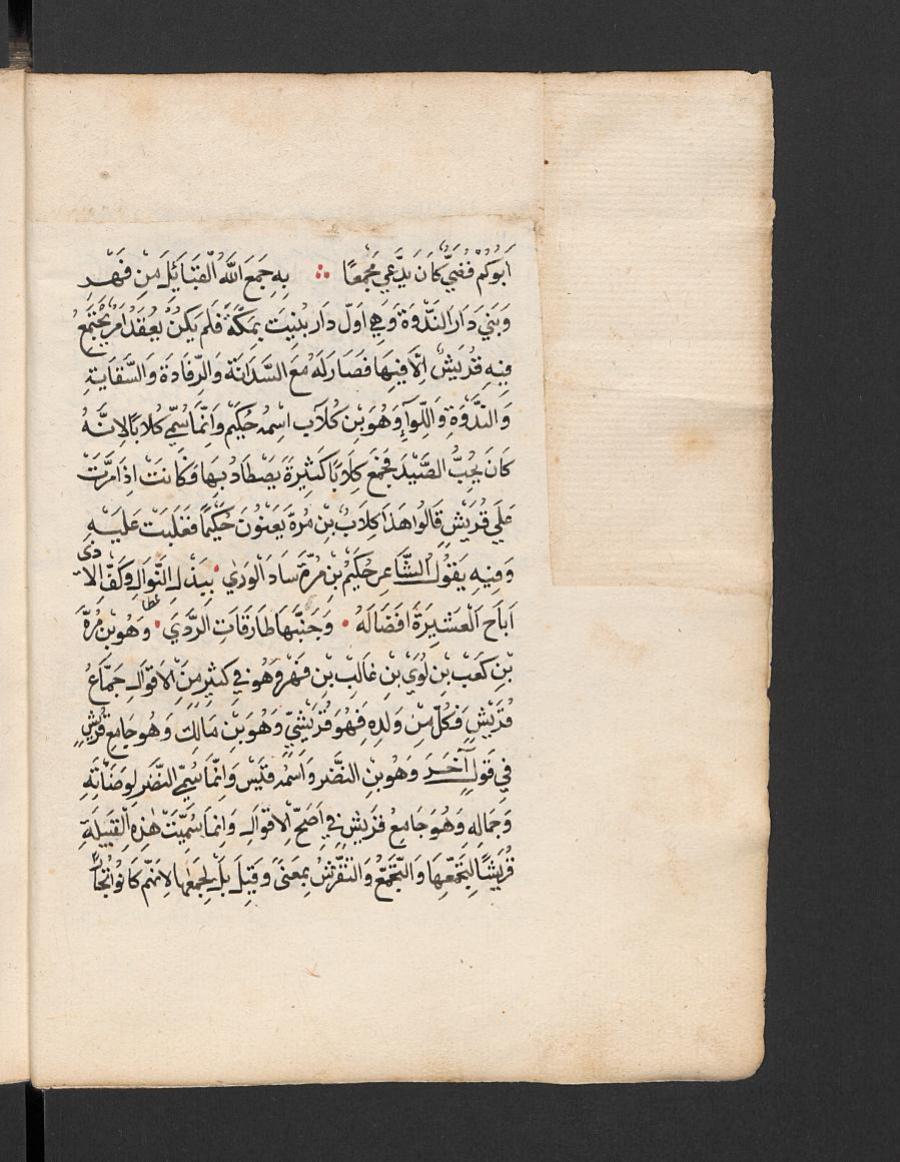 أَبُوكُم قُصَيٌّ كَانَ يُدْعَي مُجَمِّعًا ∴ بِهِ جَمَعَ اللّٰهُ الْقَبَائِلَ مِنْ فَهْرِ
وَبَنَي دَارَ النَّدْوَةِ وَهِيَ اَوَّل دَارٍ بُنِيَت بِمَكَّةَ فَلَم يَكُنْ يُعْقَدُ اَمْرٌ يَجْتَمِعُ
فِيهِ قُرَيْشٌ اِلَّا فِيهَا فَصَارَ لَهُ مَعَ السَّدَانَة وَالرِّفَادَة وَالسَّقَايَةِ
وَالنَّدْوَةِ وَاللِّوآءِ وَهُوَ بْن كِلَاب اسْمُهُ حُكَيْم وَانَّمَا سُمِّيَ كِلَابًا لِانَّهُ
كَانَ يُحِبُّ الصَّيْدَ فَجَمَعَ كِلَابًا كَثِيرَةً يَصْطَادُ بِهَا وَكَانَتْ اِذَا مَرَّتْ
عَلَي قُرَيْشٍ قَالُوا هَذَا كِلَابُ بْنِ مُرَّة يَعْنُونَ حُكَيْمًا فَغَلَبَت عَلَيْهِ
وَفِيهِ يَقُولُ الشَّاعِر حُكَيْمُ بْن مُرَّةَ سَادَ الْوَرَي • بِبَذْلِ النَّوَالِ وَكَفِّ الْاَذَى
اَبَاحَ الْعَشِيرَةَ افْضَالَهُ • وَجَنَّبَهَا طَارِقَاتِ الرَّدَي • وَهُوَ بْن مُرَّةَ
بْنِ كَعْب بْنِ لُوَيِّ بْنِ غَالِبِ بْن فَهْر وَهُوَ فِي كَثِيرٍ مِنَ الْاَقْوَالِ جَمَّاعُ
قُرَيْشٍ فَكُلٌّ مِنْ وَلَدِهِ فَهُوَ قُرَيْشِيّ وَهُوَ بْنِ مَالِك وَهُوَ جَامِعِ قُرَيْشٍ
فِي قَوْلٍ آخَرَ وَهُوَ بْنِ النَّضْرِ وَاسْمُهُ قَيْس وَانَّمَا سُمِّيَ النَّضْرَ لِوَضَاءَتِهِ
وَجَمَالِهِ وَهُوَ جَامِعُ قُرَيْشٍ فِي اَصَحِّ الْاَقْوَالِ وَانَّمَا سُمِّيَتْ هٰذِهِ الْقَبِيلَةِ
قُرَيْشًا لِتَجَمُّعِهَا وَالتَّجَمُّعُ وَالتَّقَرُّشُ بِمَعْنًى وَقِيلَ بَلْ لِجَمْعِهَا لِانَّهُم كَانُوا تُجَّارًا